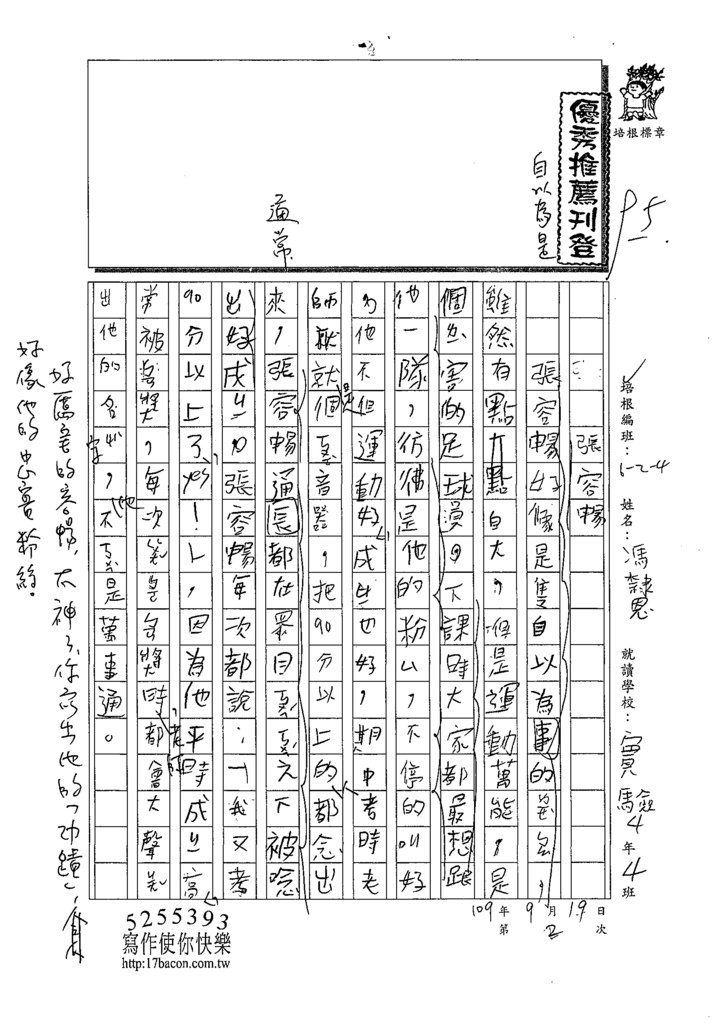 優秀推薦刊登
培根標章
95
自以為是
通常
培根編班：6-2-4
姓名：馮隸恩
就讀學校：實驗4年4班
109年9月19日
第2次
張容暢
張容暢好像是隻自以為
雖然有點大點自大，但是運動萬能，是
個出害的足球員。下課時大家都最想跟
他一隊，彷彿是他的粉ㄙ，不停的叫好
為他不但運動好，成也好，期中考時老
師就就個音器，把90分以上的都念出
來，張容暢通長都在眾目之下被唸
出好成，張容暢每次都說：「我又考
90分以上了yes！」，因為他平時成高
常被獎，每次獎時都會大聲
出他的名，不是萬事通。
好厲害的容暢，太神了，你寫出他的「功蹟」，
好像他的忠實粉絲。
5255393
寫作使你快樂
http:17bacon.com.tw